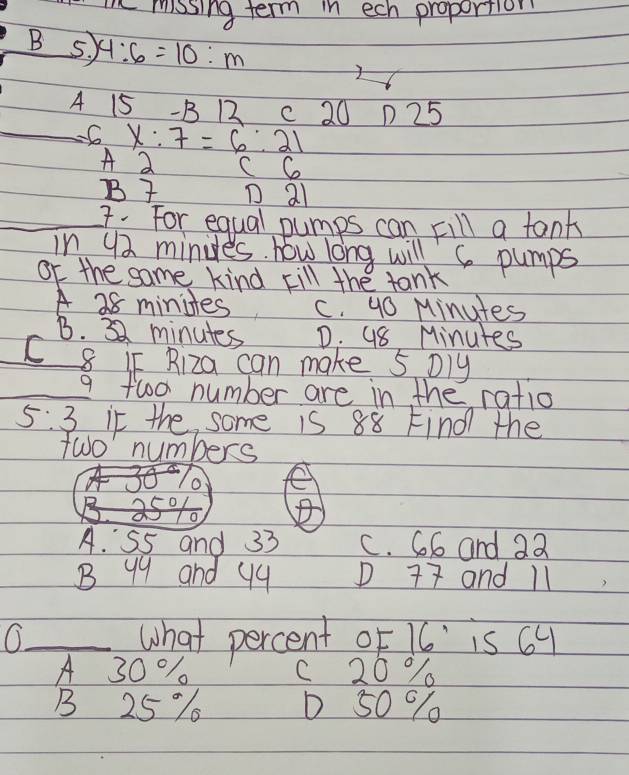 missing term in ech proportion
B 5.) 4:6 = 10 : m
A 15 -B 12 C 20 D 25
6 X : 7 = 6 : 21
A 2 C 6
B 7 D 21
7. For equal pumps can Fill a tank
in 42 minutes. how long will 6 pumps
of the same kind Fill the tank
A 28 minites C. 40 Minutes
B. 32 minutes D. 48 Minutes
C 8 IF Riza can make 5 DIY
9 two number are in the ratio
5:3 if the some is 88 Find the
two numbers
A 30%
B. 25%
A. 55 and 33 C. 66 and 22
B 44 and 44 D 77 and 11
0 What percent of 16 is 64
A 30% C 20%
B 25% D 50%